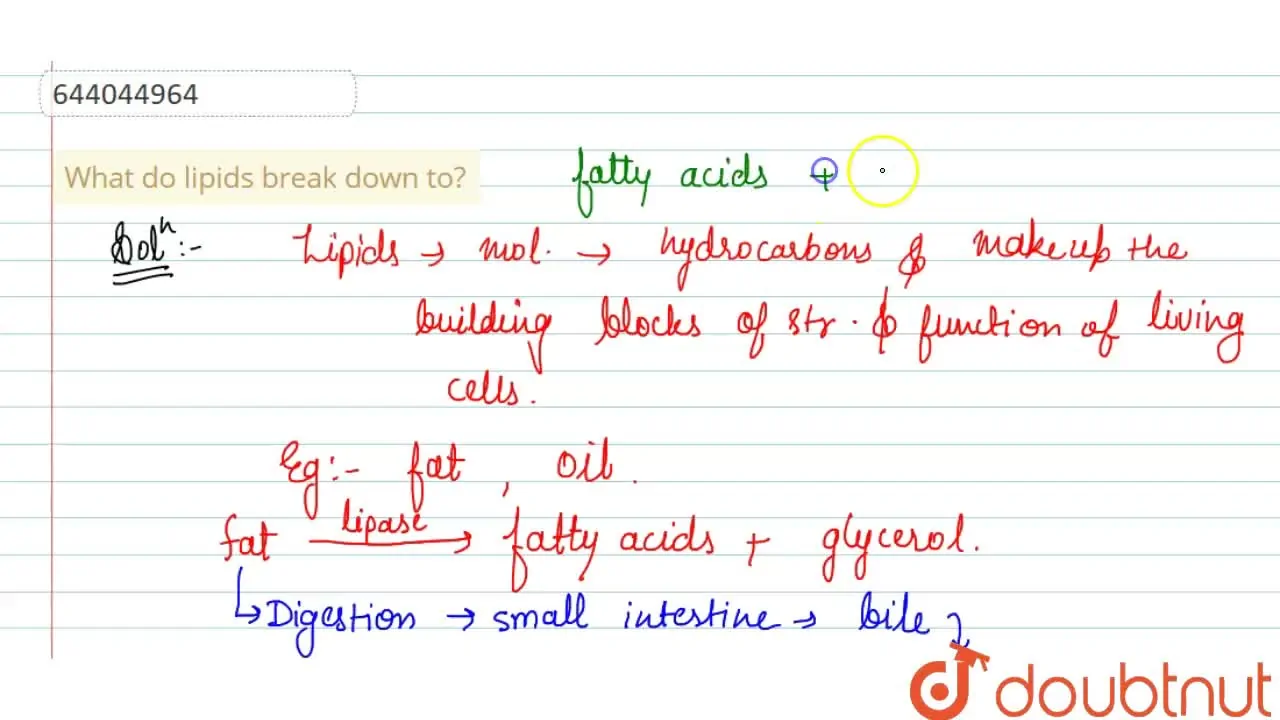 644044964
What do lipids break down to?
fatty acids +
Solⁿ:-
Lipids → mol. → hydrocarbons & makeup the
building blocks of str. & function of living
cells.
Eg:- fat, oil.
fat lipase → fatty acids + glycerol.
↳ Digestion → small intestine → bile
doubtnut